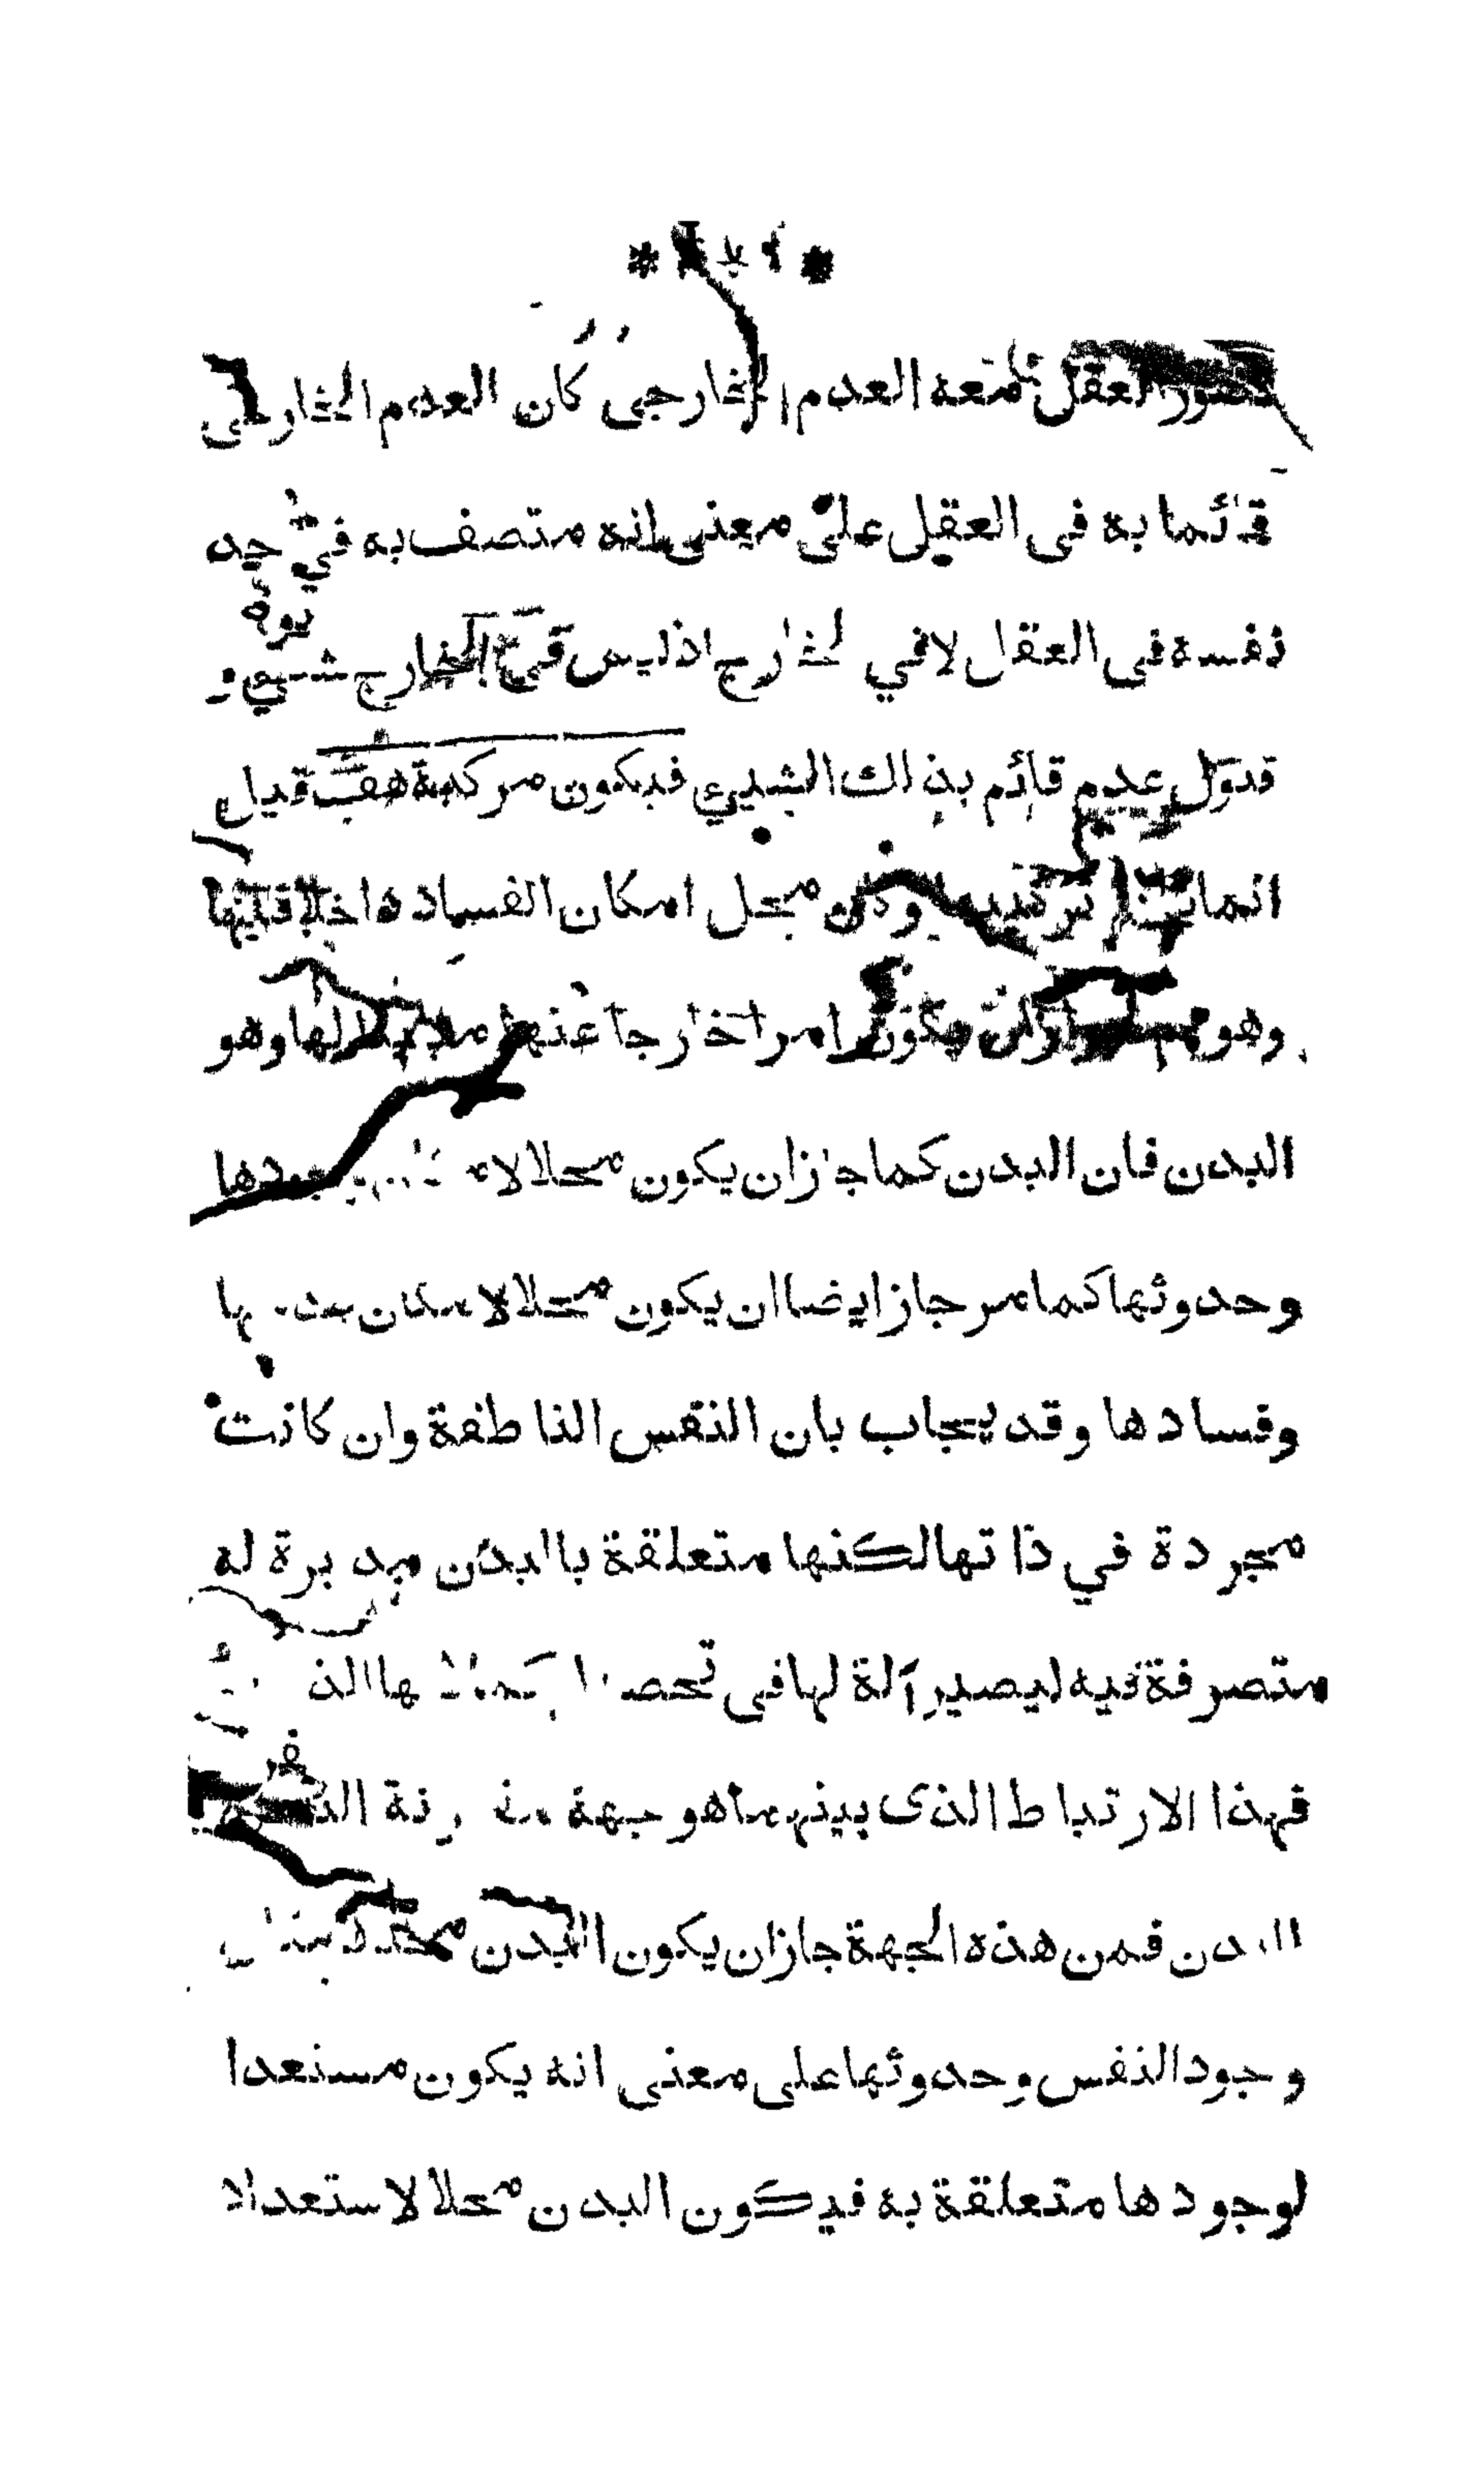 العقل معه العدم الخارجى كان العدم الخارجى
قائما به فى العقل على معنى انه متصف به في حد
نفسه فى العقل لافي لخارج اذليس في الخارج شىء و
قبول عدم قائم بذلك الشيىء فيكون مركبة هف قيل
انما محل امكان الفساد داخلا فيها
وهو يكون امرا خارجا عنها لها وهو
البدن فان البدن كما جازان يكون محلالا
وحدوثها كما مر جاز ايضاان يكون محلالامكان
وفسادها وقد يجاب بان النفس الناطقة وان كانت
مجردة في ذاتها لكنها متعلقة باالبدن مدبرة له
متصرفة فيه ليصير آلة لهافى
فهذا الارتباط الذى بينهما هو جهة
البدن فمن هذه الجهة جازان يكون البدن
وجود النفس وحدوثها على معنى انه يكون مستعدا
لوجودها متعلقة به فيكون البدن محلالا ستعداد